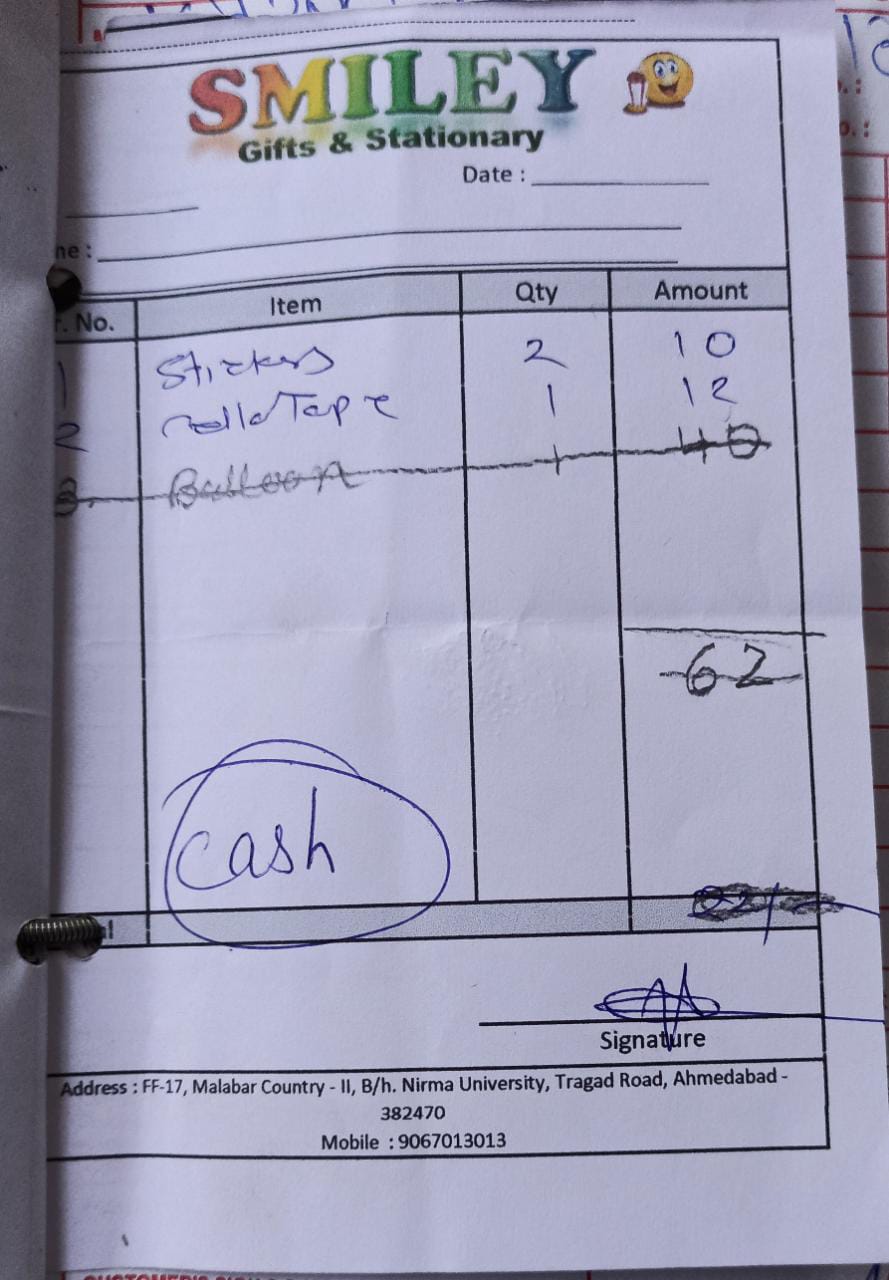 SMILEY
Gifts & Stationary
Date :
ne :
r. No. Item Qty Amount
1 Stickers 2 10
2 Tape 1 12
3. Balloon 1 40
62
Cash
Signature
Address : FF-17, Malabar Country - II, B/h. Nirma University, Tragad Road, Ahmedabad -
382470
Mobile : 9067013013